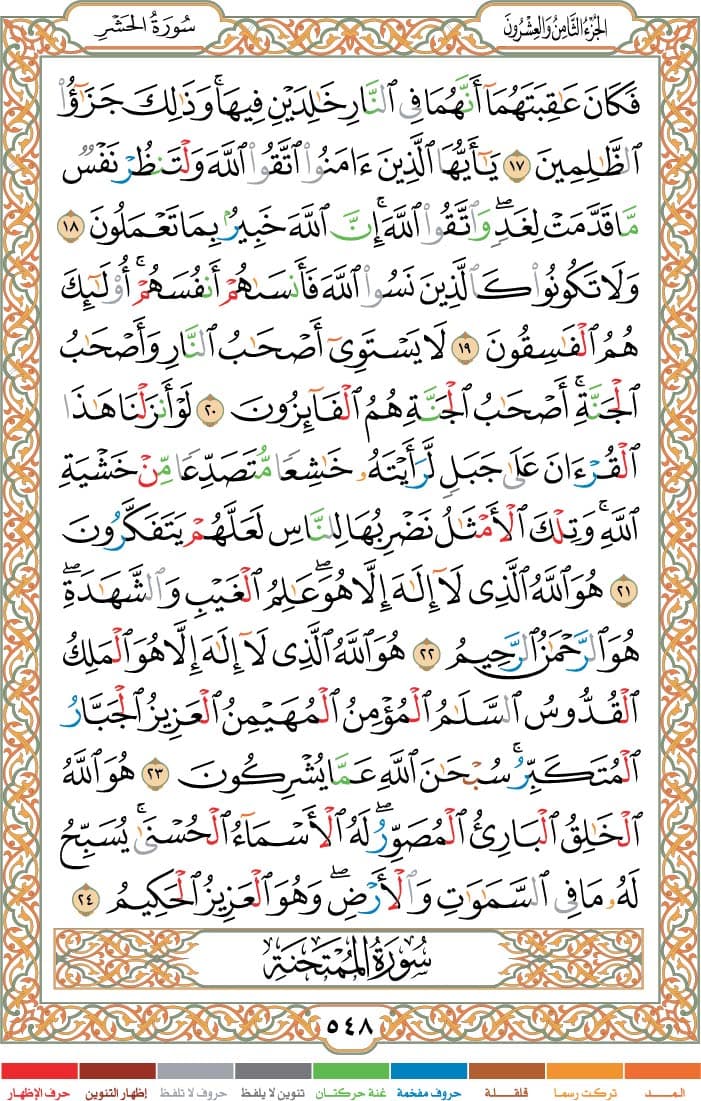 سُورَةُ الحَشْرِ
الجُزْءُ الثَّامِنُ وَالعِشْرُونَ
فَكَانَ عَٰقِبَتَهُمَآ أَنَّهُمَا فِى ٱلنَّارِ خَٰلِدَيْنِ فِيهَا ۚ وَذَٰلِكَ جَزَٰٓؤُا۟
ٱلظَّٰلِمِينَ ١٧ يَٰٓأَيُّهَا ٱلَّذِينَ ءَامَنُوا۟ ٱتَّقُوا۟ ٱللَّهَ وَلْتَنظُرْ نَفْسٌ
مَّا قَدَّمَتْ لِغَدٍ ۖ وَٱتَّقُوا۟ ٱللَّهَ ۚ إِنَّ ٱللَّهَ خَبِيرٌۢ بِمَا تَعْمَلُونَ ١٨
وَلَا تَكُونُوا۟ كَٱلَّذِينَ نَسُوا۟ ٱللَّهَ فَأَنسَىٰهُمْ أَنفُسَهُمْ ۚ أُو۟لَٰٓئِكَ
هُمُ ٱلْفَٰسِقُونَ ١٩ لَا يَسْتَوِىٓ أَصْحَٰبُ ٱلنَّارِ وَأَصْحَٰبُ
ٱلْجَنَّةِ ۚ أَصْحَٰبُ ٱلْجَنَّةِ هُمُ ٱلْفَآئِزُونَ ٢٠ لَوْ أَنزَلْنَا هَٰذَا
ٱلْقُرْءَانَ عَلَىٰ جَبَلٍ لَّرَأَيْتَهُۥ خَٰشِعًا مُّتَصَدِّعًا مِّنْ خَشْيَةِ
ٱللَّهِ ۚ وَتِلْكَ ٱلْأَمْثَٰلُ نَضْرِبُهَا لِلنَّاسِ لَعَلَّهُمْ يَتَفَكَّرُونَ
٢١ هُوَ ٱللَّهُ ٱلَّذِى لَآ إِلَٰهَ إِلَّا هُوَ ۖ عَٰلِمُ ٱلْغَيْبِ وَٱلشَّهَٰدَةِ ۖ
هُوَ ٱلرَّحْمَٰنُ ٱلرَّحِيمُ ٢٢ هُوَ ٱللَّهُ ٱلَّذِى لَآ إِلَٰهَ إِلَّا هُوَ ٱلْمَلِكُ
ٱلْقُدُّوسُ ٱلسَّلَٰمُ ٱلْمُؤْمِنُ ٱلْمُهَيْمِنُ ٱلْعَزِيزُ ٱلْجَبَّارُ
ٱلْمُتَكَبِّرُ ۚ سُبْحَٰنَ ٱللَّهِ عَمَّا يُشْرِكُونَ ٢٣ هُوَ ٱللَّهُ
ٱلْخَٰلِقُ ٱلْبَارِئُ ٱلْمُصَوِّرُ ۖ لَهُ ٱلْأَسْمَآءُ ٱلْحُسْنَىٰ ۚ يُسَبِّحُ
لَهُۥ مَا فِى ٱلسَّمَٰوَٰتِ وَٱلْأَرْضِ ۖ وَهُوَ ٱلْعَزِيزُ ٱلْحَكِيمُ ٢٤
سُورَةُ المُمْتَحنَةِ
٥٤٨
المــــد تركت رسما قلقــلة حروف مفخمة غنة حركتان تنوين لا يلفظ حروف لا تلفظ إظهار التنوين حرف الإظهار